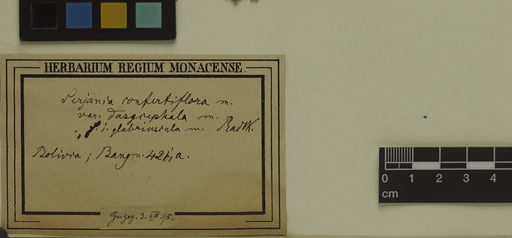 HERBARIUM REGIUM MONACENSE.
Serjania confertiflora m.
var. dasycephala m.
f. 1. glabriuscula m. Radlk.
Bolivia; Bang n. 421, a.
3. VII. 95.
0 1 2 3 4
cm